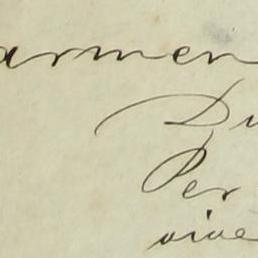 armen
Du
Per
vive